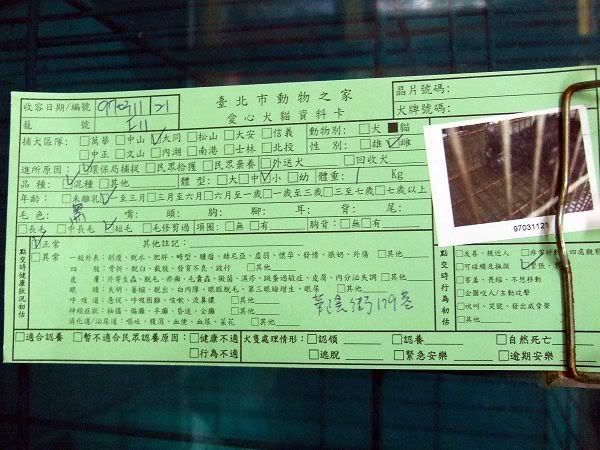 收容日期/編號 970311 21
臺北市動物之家
晶片號碼:
籠號 E11
愛心犬貓資料卡
犬牌號碼:
捕犬區隊: □萬華 □中山 ☑大同 □松山 □大安 □信義 動物別: □犬 ■貓
□中正 □文山 □內湖 □南港 □士林 □北投 性別: □雄 ☑雌
進所原因: ☑環保局捕捉 □民眾拾獲 □民眾棄養 □外送犬 □回收犬
品種: ☑混種 □其他 體型: □大 □中 ☑小 □幼 體重: 1 Kg
年齡: □未離乳 ☑至三月 □三月至六月 □六月至一歲 □一歲至三歲 □三至七歲 □七歲以上
毛色: 黑 嘴: 頭: 胸: 腳: 耳: 背: 尾:
□長毛 □中長毛 ☑短毛 □毛修剪過 項圈: □無 □有 胸背: □無 □有
97031121
點交時健康狀況初估
☑正常
□異常
其他註記:
一般外表: 削瘦、脫水、肥胖、畸型、腫瘤、赫尼亞、虛弱、懷孕、發情、脹奶、外傷 □其他
四肢: 骨折、脫臼、截肢、發育不良、跛行 □其他
皮膚: 外寄生蟲、脫毛、疥癬、毛囊蟲、黴菌、濕疹、跳蚤過敏症、皮屑、內分泌失調 □其他
眼睛: 失明、萎縮、脫出、白內障、眼瞼脫毛、第三眼瞼增生、眼屎 □其他
呼吸道: 急促、呼吸困難、咳嗽、流鼻膿 □其他
神經症狀: 抽搐、偏癱、不癱、昏迷、全癱 □其他
消化道/泌尿道: 嘔吐、腹瀉、血便、血尿、菜花 □其他
華陰街129巷
點交時行為初估
□友善、親近人 □非常好動、四處觀察
□可碰觸及撫摸 ☑緊張、
□害羞、畏縮、不想移動
□企圖咬人/主動攻擊
□吠叫、哭號、發出威脅聲
□其他
□適合認養 □暫不適合民眾認養原因: □健康不適 犬隻處理情形: □認領 □認養 □自然死亡
□行為不適 □逃脫 □緊急安樂 □逾期安樂